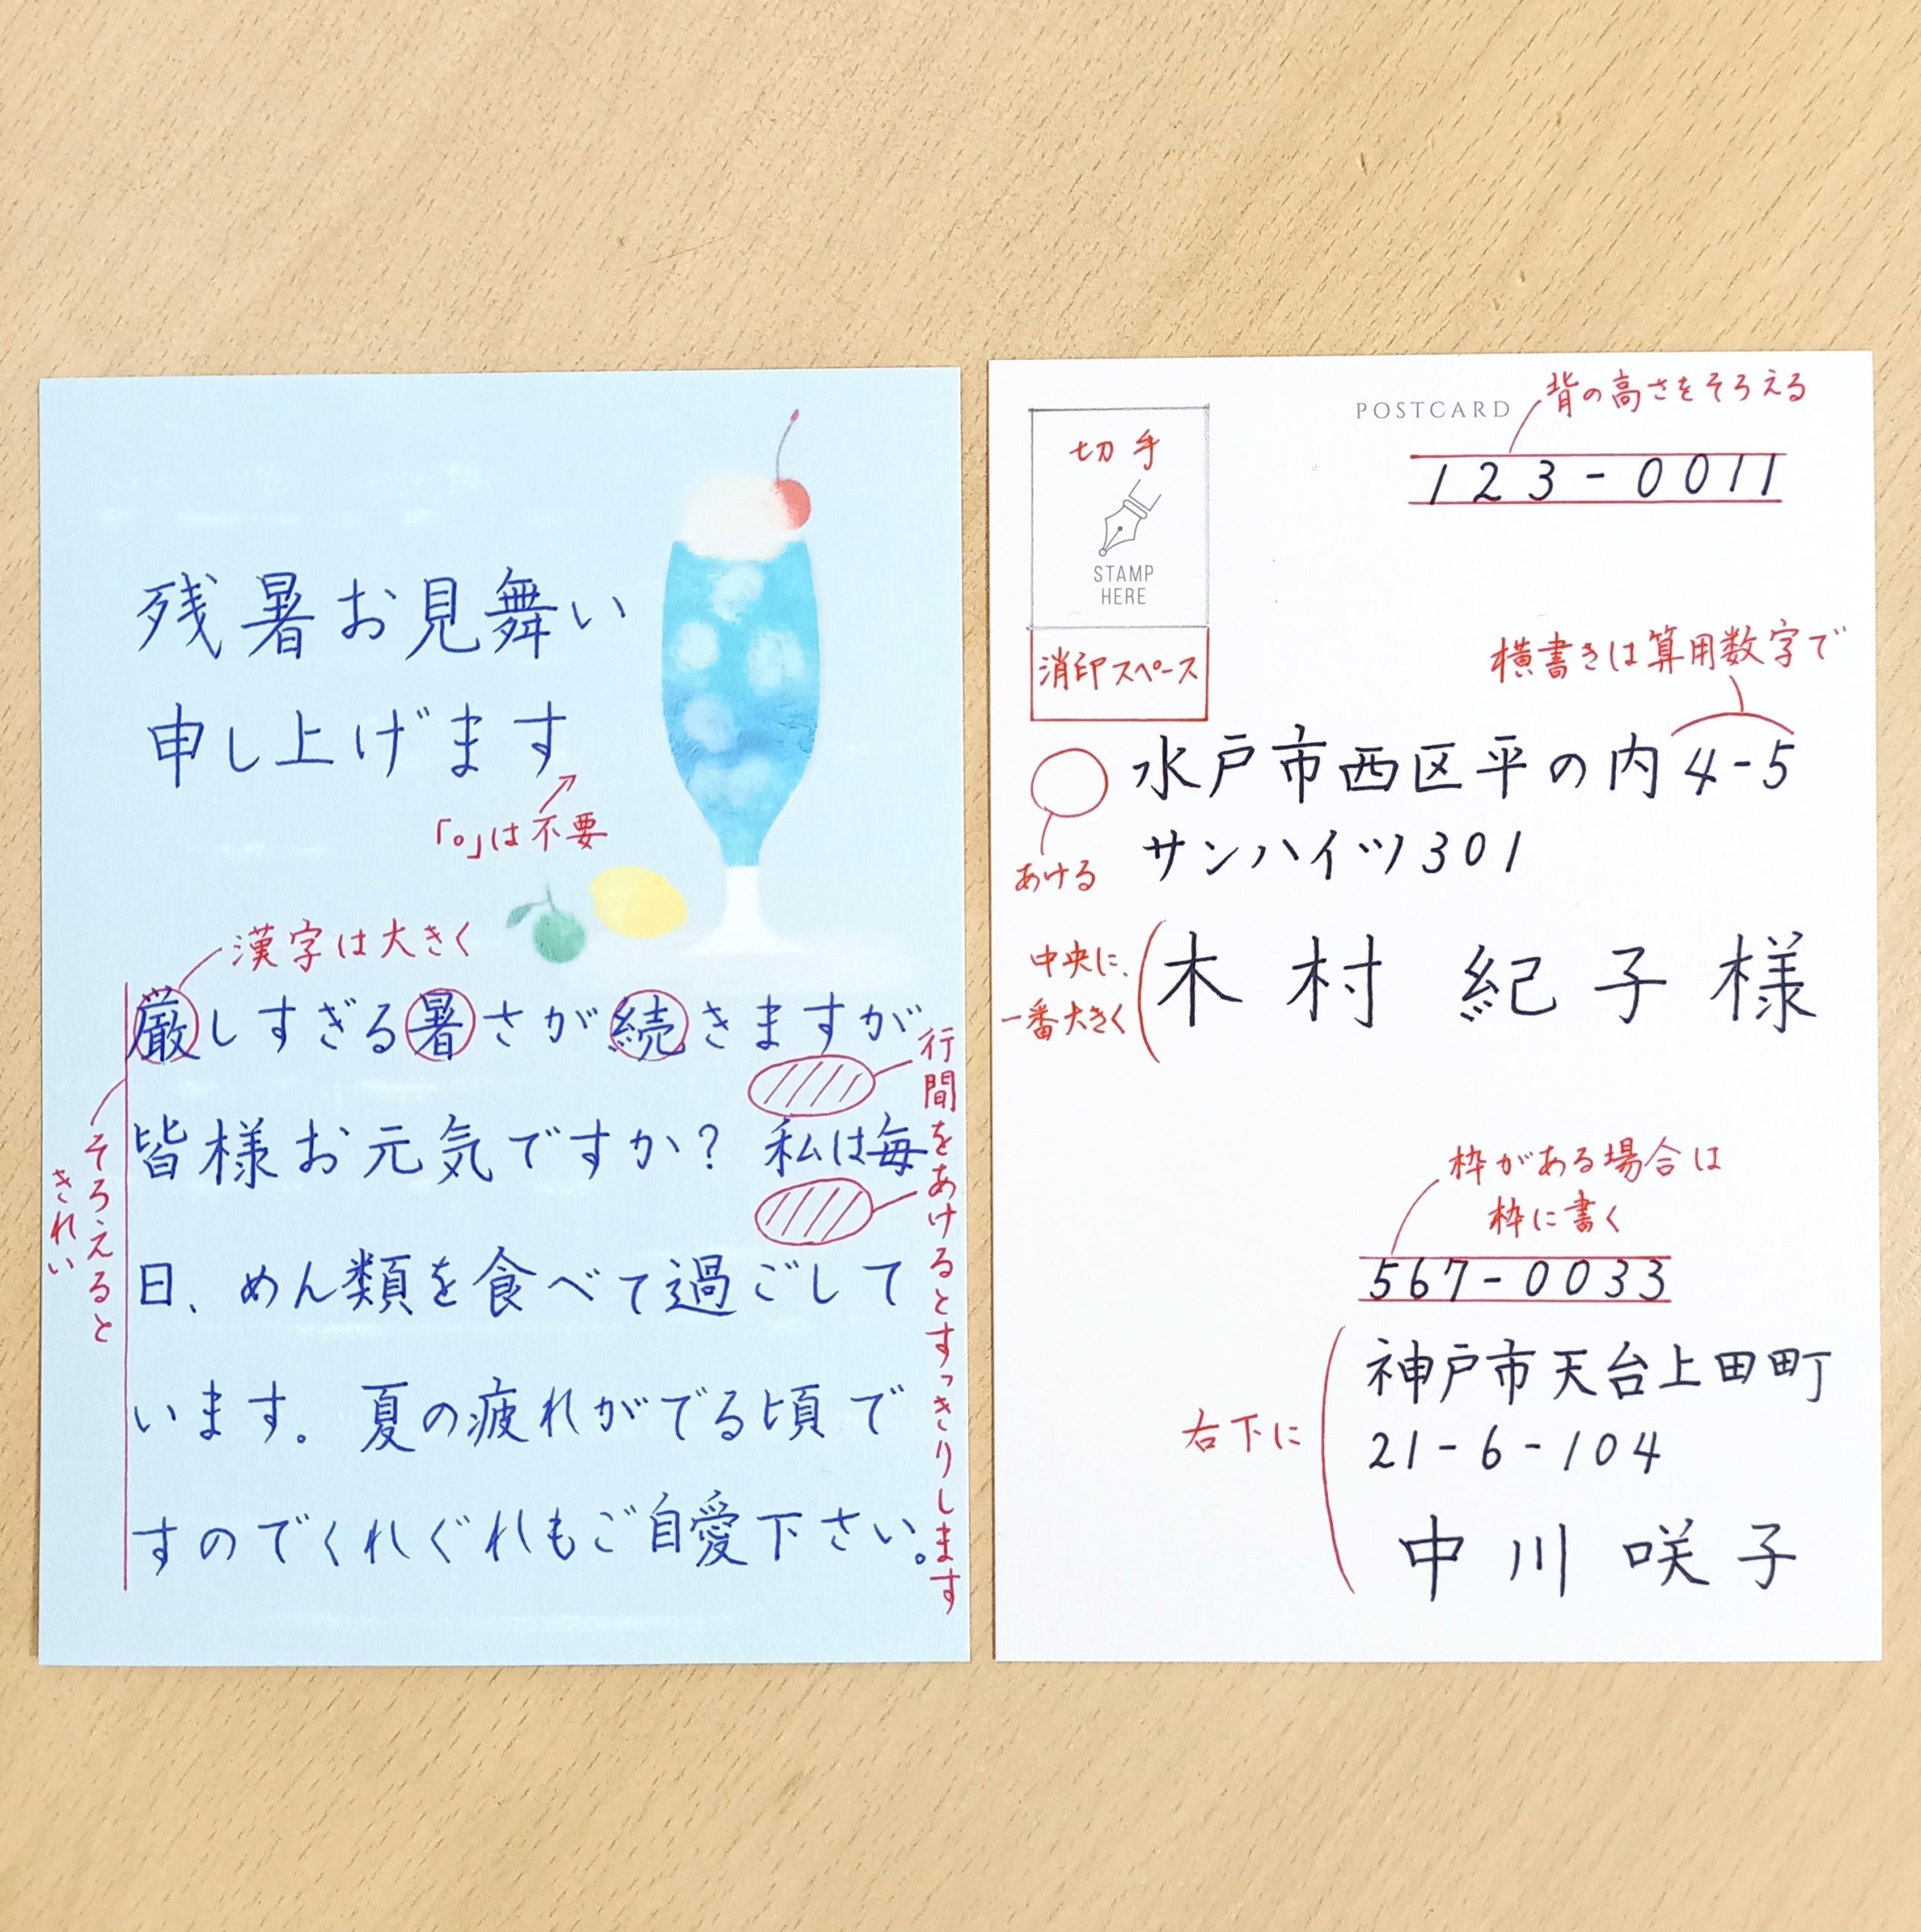 残暑お見舞い
申し上げます
「。」は不要
漢字は大きく
厳しすぎる暑さが続きますが
皆様お元気ですか？ 私は毎
日、めん類を食べて過ごして
います。夏の疲れがでる頃で
すのでくれぐれもご自愛下さい。
そろえると
きれい
行間をあけるとすっきりします
POSTCARD
背の高さをそろえる
123-0011
切手
STAMP
HERE
消印スペース
横書きは算用数字で
水戸市西区平の内4-5
サンハイツ301
あける
中央に、
一番大きく
木村 紀子 様
枠がある場合は
枠に書く
567-0033
神戸市天台上田町
21-6-104
中川 咲子
右下に